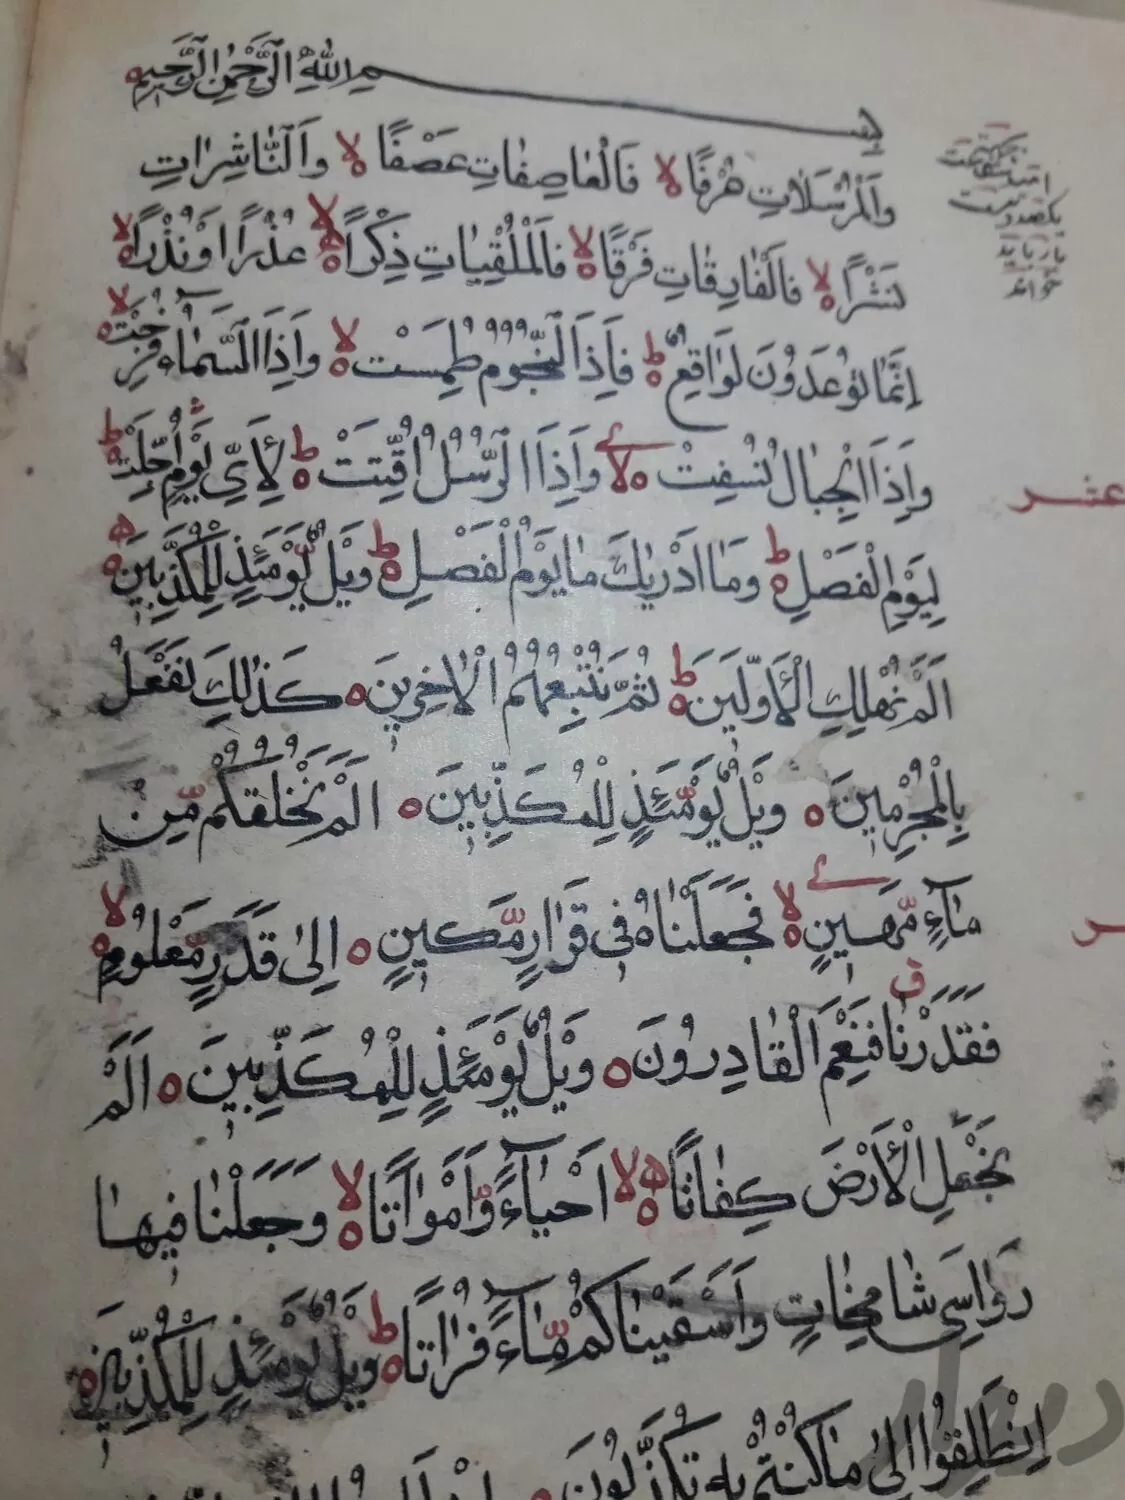 بسم الله الرحمن الرحيم
وَالْمُرْسَلَاتِ عُرْفًا لا فَالْعَاصِفَاتِ عَصْفًا لا وَالنَّاشِرَاتِ
نَشْرًا لا فَالْفَارِقَاتِ فَرْقًا لا فَالْمُلْقِيَاتِ ذِكْرًا لا عُذْرًا اَوْ نُذْرًا لا
اِنَّمَا تُوعَدُونَ لَوَاقِعٌ ط فَاِذَا النُّجُومُ طُمِسَتْ لا وَاِذَا السَّمَاءُ فُرِجَتْ لا
وَاِذَا الْجِبَالُ نُسِفَتْ لا وَاِذَا الرُّسُلُ اُقِّتَتْ ط لِاَيِّ يَوْمٍ اُجِّلَتْ ط
لِيَوْمِ الْفَصْلِ ط وَمَا اَدْرٰيكَ مَا يَوْمُ الْفَصْلِ ط وَيْلٌ يَوْمَئِذٍ لِلْمُكَذِّبِينَ ه
اَلَمْ نُهْلِكِ الْاَوَّلِينَ ط ثُمَّ نُتْبِعُهُمُ الْاٰخِرِينَ ه كَذٰلِكَ نَفْعَلُ
بِالْمُجْرِمِينَ ه وَيْلٌ يَوْمَئِذٍ لِلْمُكَذِّبِينَ ه اَلَمْ نَخْلُقْكُمْ مِنْ
مَاءٍ مَهِينٍ لا فَجَعَلْنَاهُ فِى قَرَارٍ مَكِينٍ ه اِلٰى قَدَرٍ مَعْلُومٍ لا
فَقَدَرْنَا ف فَنِعْمَ الْقَادِرُونَ ه وَيْلٌ يَوْمَئِذٍ لِلْمُكَذِّبِينَ ه اَلَمْ
نَجْعَلِ الْاَرْضَ كِفَاتًا لا اَحْيَاءً وَاَمْوَاتًا لا وَجَعَلْنَا فِيهَا
رَوَاسِىَ شَامِخَاتٍ وَاَسْقَيْنَاكُمْ مَاءً فُرَاتًا ط وَيْلٌ يَوْمَئِذٍ لِلْمُكَذِّبِينَ ه
اِنْطَلِقُوا اِلٰى مَا كُنْتُمْ بِهِ تُكَذِّبُونَ
يكصد و بيست
بار بايد
خواند
عشر
ديوار